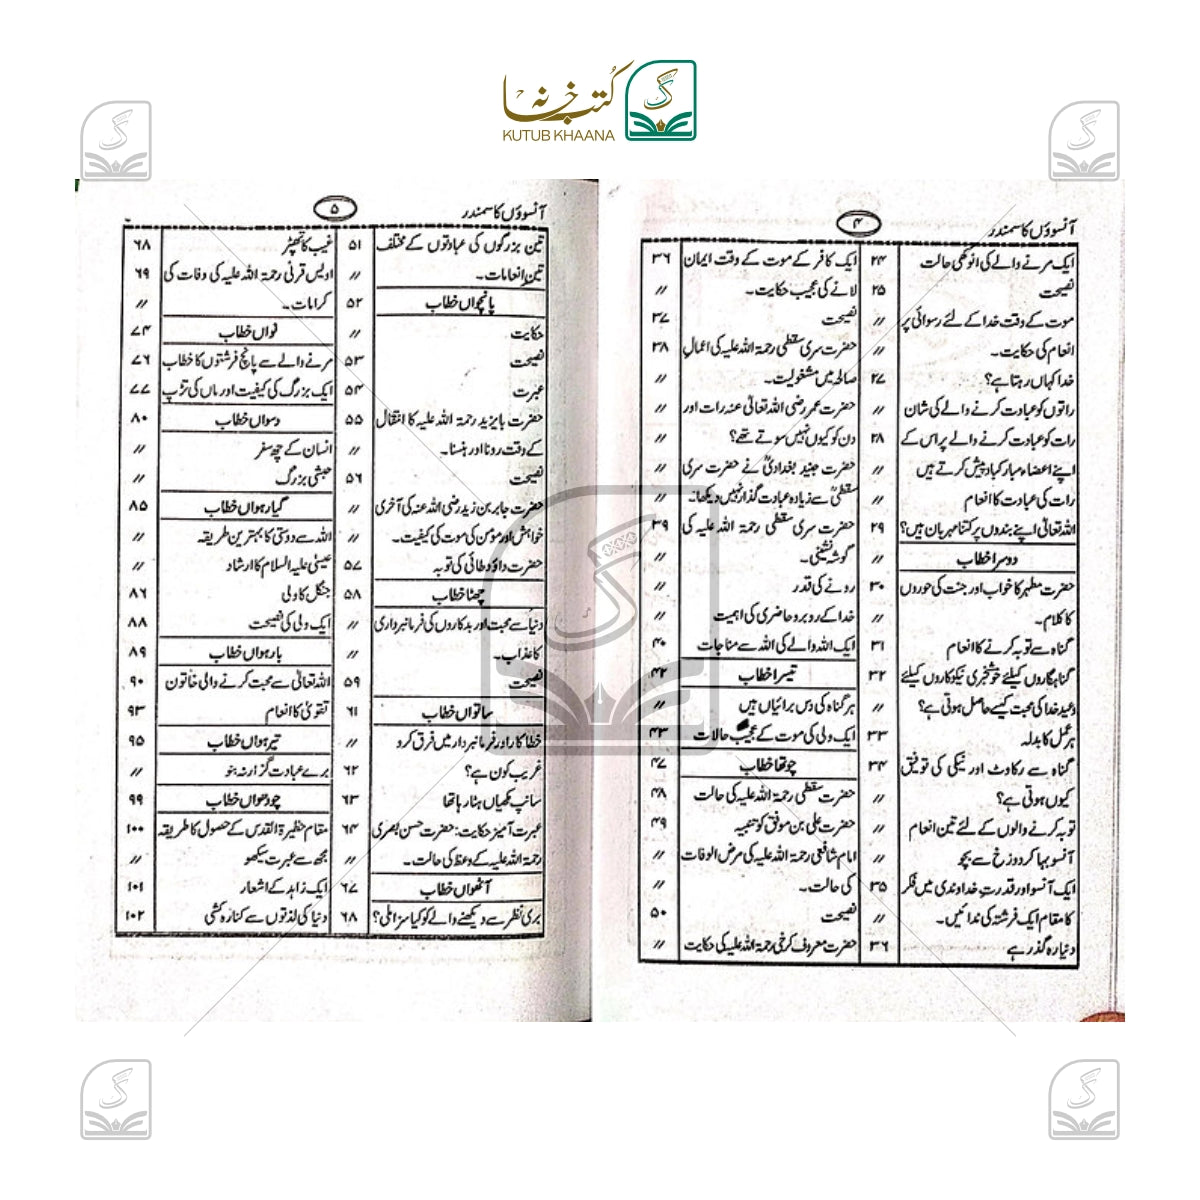 کتب خانہ
KUTUB KHAANA
آنسوؤں کا سمندر
۴
ایک مرنے والے کی انوکھی حالت ۲۴
نصیحت ۲۵
موت کے وقت خدا کے لئے رسوائی پر 〃
انعام کی حکایت۔ 〃
خدا کہاں رہتا ہے؟ ۲۷
راتوں کو عبادت کرنے والے کی شان 〃
رات کو عبادت کرنے والے پر اس کے ۲۸
اپنے اعضاء مبارکباد پیش کرتے ہیں 〃
رات کی عبادت کا انعام 〃
اللہ تعالیٰ اپنے بندوں پر کتنا مہربان ہیں؟ ۲۹
دوسرا خطاب 〃
حضرت مطہر کا خواب اور جنت کی حوروں ۳۰
کا کلام۔
گناہ سے توبہ کرنے کا انعام ۳۱
گناہگاروں کیلئے خوشخبری نیکوکاروں کیلئے ۳۲
وعید خدا کی محبت کیسے حاصل ہوتی ہے؟ 〃
ہر عمل کا بدلہ ۳۳
گناہ سے رکاوٹ اور نیکی کی توفیق ۳۴
کیوں ہوتی ہے؟ 〃
توبہ کرنے والوں کے لئے تین انعام 〃
آنسو بہا کر دوزخ سے بچو 〃
ایک آنسو اور قدرت خداوندی میں فکر ۳۵
کا مقام ایک فرشتہ کی ندائیں۔ 〃
دنیا رہ گذر ہے ۳۶
ایک کافر کے موت کے وقت ایمان ۳۶
لانے کی عجیب حکایت۔ 〃
نصیحت ۳۷
حضرت سری سقطی رحمۃ اللہ علیہ کی اعمال ۳۸
صالحہ میں مشغولیت۔ 〃
حضرت عمر رضی اللہ تعالیٰ عنہ رات اور 〃
دن کو کیوں نہیں سوتے تھے؟ 〃
حضرت جنید بغدادیؒ نے حضرت سری 〃
سقطیؒ سے زیادہ عبادت گذار نہیں دیکھا۔ 〃
حضرت سری سقطی رحمۃ اللہ علیہ کی ۳۹
گوشہ نشینی۔ 〃
رونے کی قدر 〃
خدا کے روبرو حاضری کی اہمیت 〃
ایک اللہ والے کی اللہ سے مناجات ۴۰
تیسرا خطاب ۴۲
ہر گناہ کی دس برائیاں ہیں 〃
ایک ولی کی موت کے عجیب حالات ۴۳
چوتھا خطاب ۴۷
حضرت سقطی رحمۃ اللہ علیہ کی حالت ۴۸
حضرت علی بن موفق کو تنبیہ ۴۹
امام شافعی رحمۃ اللہ علیہ کی مرض الوفات 〃
کی حالت۔ 〃
نصیحت ۵۰
حضرت معروف کرخی رحمۃ اللہ علیہ کی حکایت 〃
آنسوؤں کا سمندر
۵
تین بزرگوں کی عبادتوں کے مختلف ۵۱
تین انعامات۔ 〃
پانچواں خطاب ۵۲
حکایت 〃
نصیحت ۵۳
عبرت ۵۴
حضرت بایزید رحمۃ اللہ علیہ کا انتقال ۵۵
کے وقت رونا اور ہنسنا۔ 〃
نصیحت ۵۶
حضرت جابر بن زید رضی اللہ عنہ کی آخری 〃
خواہش اور مومن کی موت کی کیفیت۔ 〃
حضرت داؤد طائی کی توبہ ۵۷
چھٹا خطاب ۵۸
دنیا سے محبت اور بدکاروں کی فرمانبرداری 〃
کا عذاب۔ 〃
نصیحت ۵۹
ساتواں خطاب ۶۱
خطا کار اور فرمانبردار میں فرق کرو 〃
غریب کون ہے؟ ۶۲
سانپ مکھیاں ہٹا رہا تھا ۶۳
عبرت آمیز حکایت: حضرت حسن بصری ۶۴
رحمۃ اللہ علیہ کے وعظ کی حالت۔ 〃
آٹھواں خطاب ۶۷
بری نظر سے دیکھنے والے کو کیا سزا ملی؟ ۶۸
غیب کا تھپڑ ۶۸
اویس قرنی رحمۃ اللہ علیہ کی وفات کی ۶۹
کرامات۔ 〃
نواں خطاب ۷۴
مرنے والے سے پانچ فرشتوں کا خطاب ۷۶
ایک بزرگ کی کیفیت اور ماں کی تڑپ ۷۷
دسواں خطاب ۸۰
انسان کے چھ سفر 〃
حبشی بزرگ 〃
گیارہواں خطاب ۸۵
اللہ سے دوستی کا بہترین طریقہ 〃
عیسیٰ علیہ السلام کا ارشاد 〃
جنگل کا ولی ۸۶
ایک ولی کی نصیحت ۸۸
بارہواں خطاب ۸۹
اللہ تعالیٰ سے محبت کرنے والی خاتون ۹۰
تقویٰ کا انعام ۹۳
تیرہواں خطاب ۹۵
برے عبادت گزار نہ بنو 〃
چودھواں خطاب ۹۹
مقام حظیرۃ القدس کے حصول کا طریقہ ۱۰۰
مجھ سے عبرت سیکھو 〃
ایک زاہد کے اشعار ۱۰۱
دنیا کی لذتوں سے کنارہ کشی ۱۰۲